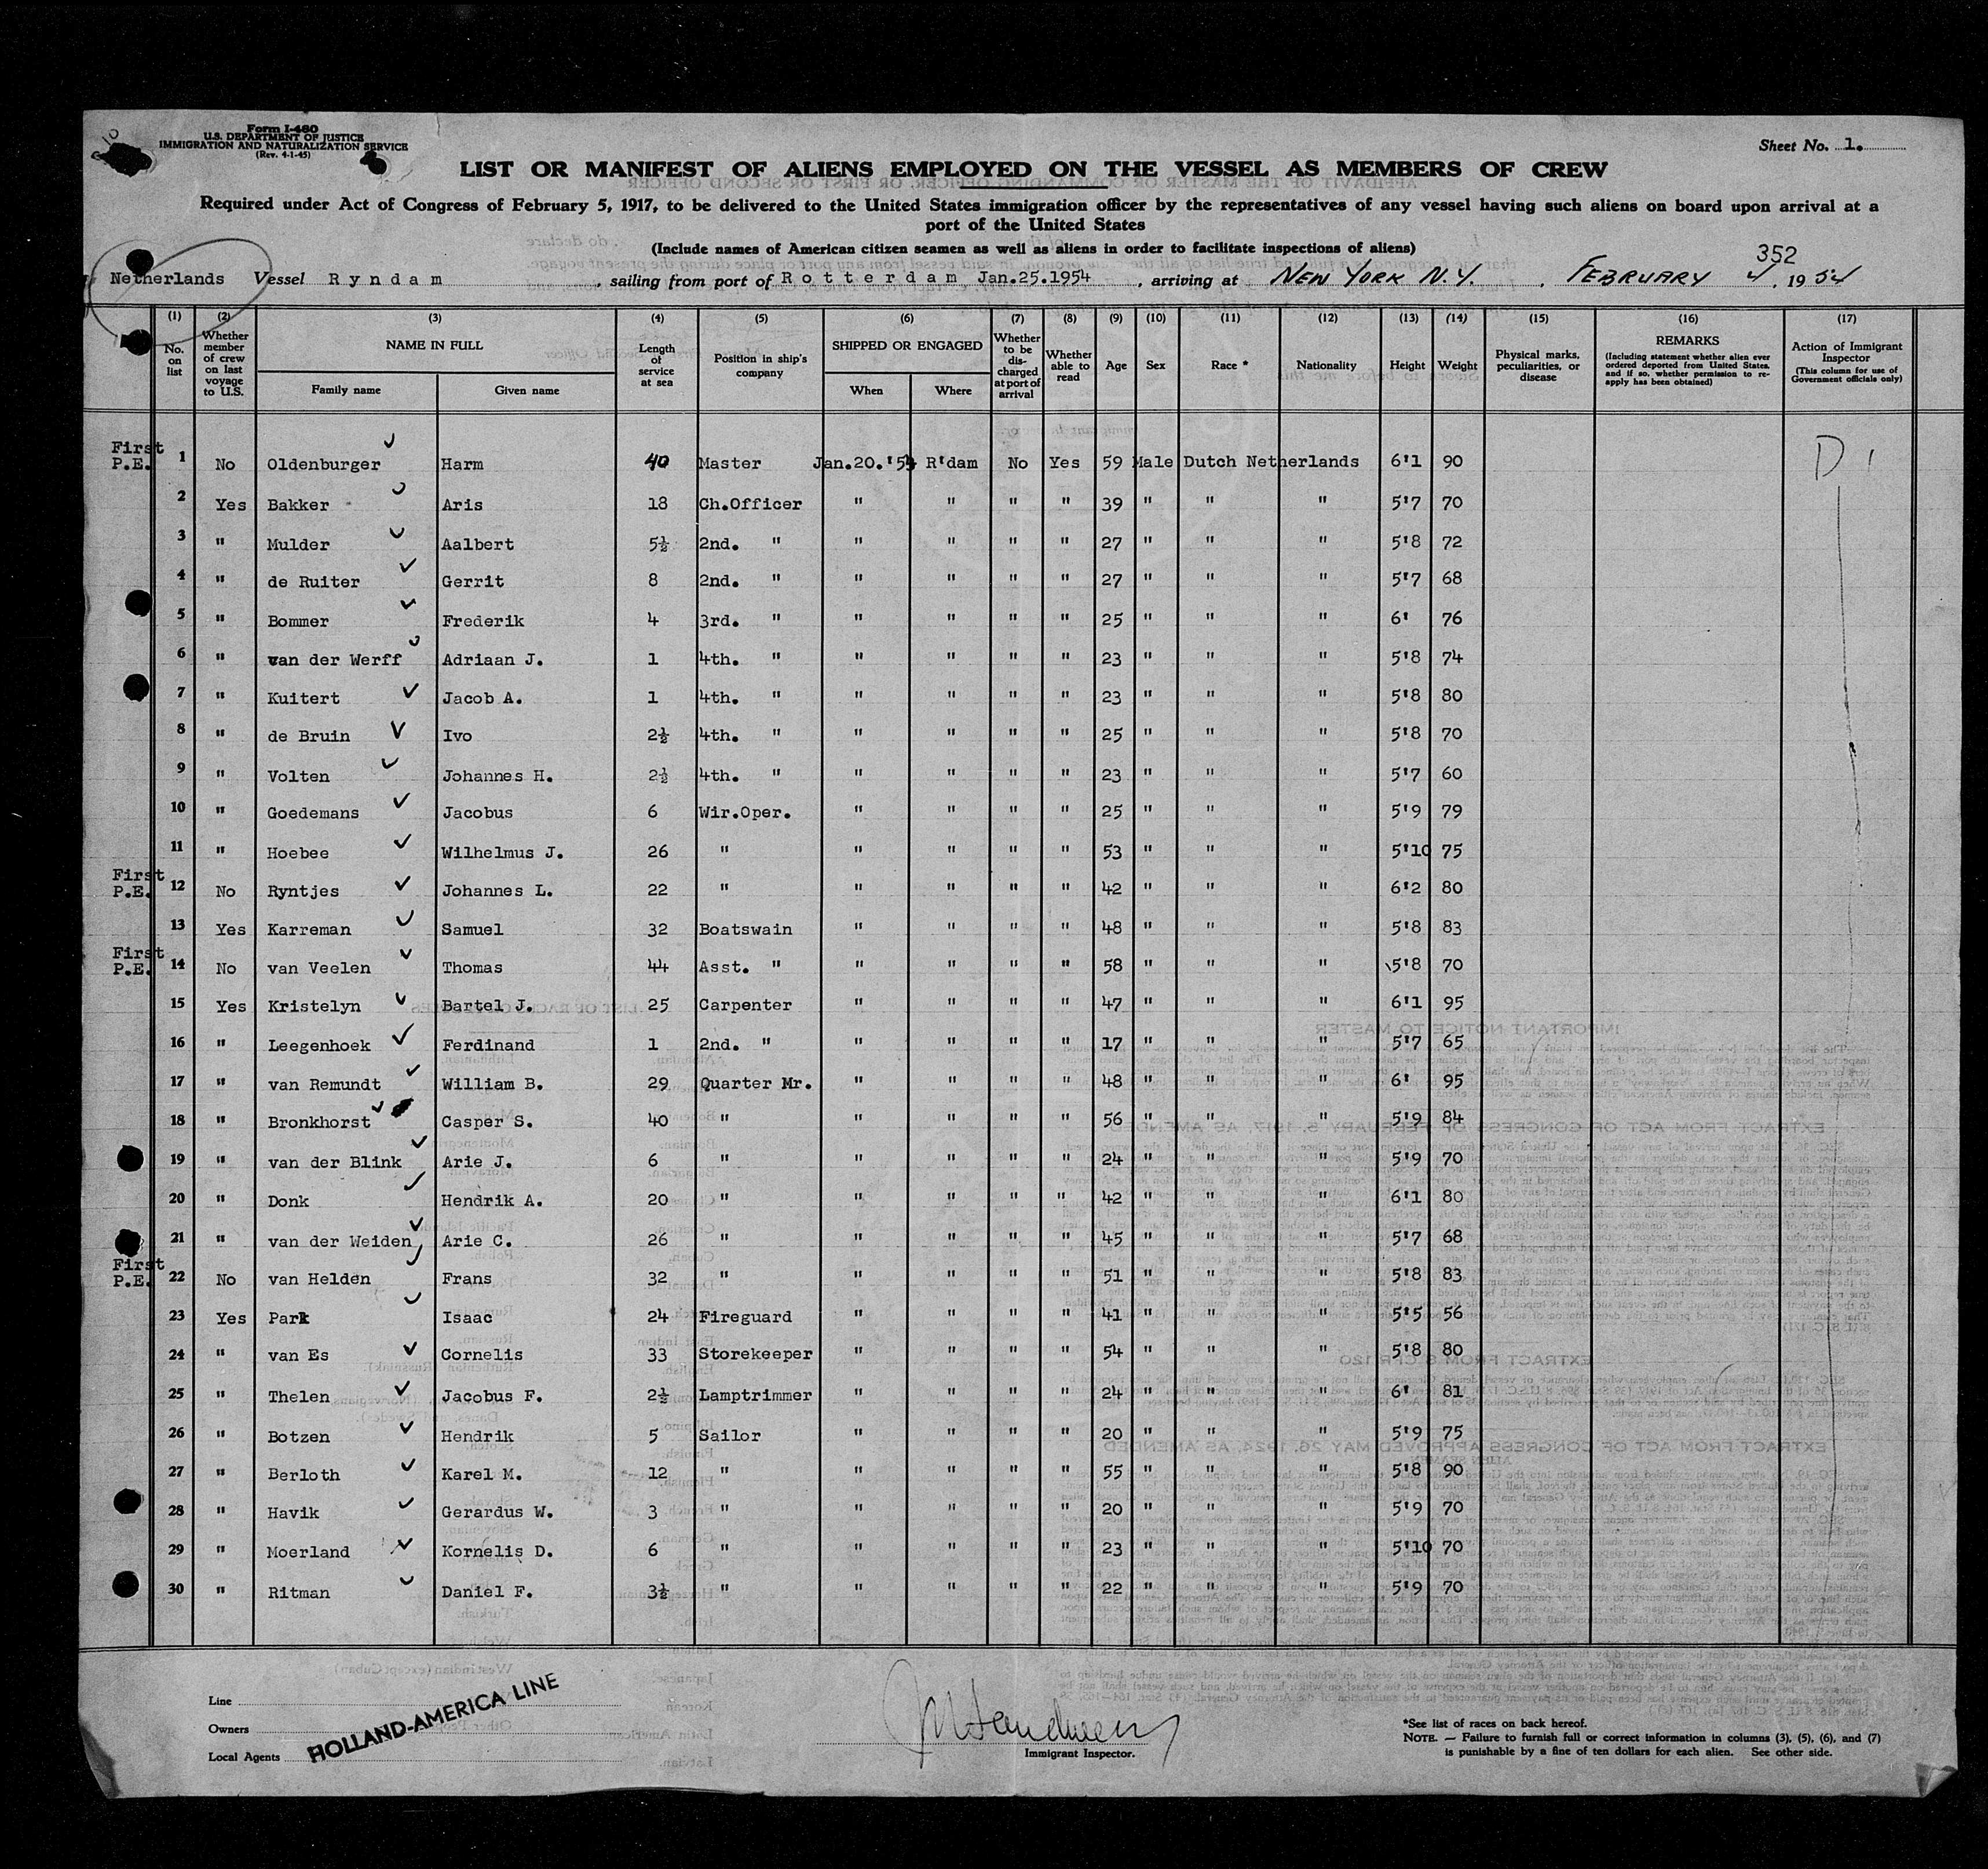 Form I-460
U.S. DEPARTMENT OF JUSTICE
IMMIGRATION AND NATURALIZATION SERVICE
(Rev. 4-1-45)
Sheet No. 1.
LIST OR MANIFEST OF ALIENS EMPLOYED ON THE VESSEL AS MEMBERS OF CREW
Required under Act of Congress of February 5, 1917, to be delivered to the United States immigration officer by the representatives of any vessel having such aliens on board upon arrival at a
port of the United States
(Include names of American citizen seamen as well as aliens in order to facilitate inspections of aliens)
352
Netherlands Vessel Ryndam, sailing from port of Rotterdam Jan.25.1954, arriving at NEW YORK N.Y., FEBRUARY 4, 1954
(1) (2) (3) (4) (5) (6) (7) (8) (9) (10) (11) (12) (13) (14) (15) (16) (17)
No. on list | Whether member of crew on last voyage to U.S. | NAME IN FULL | Family name | Given name | Length of service at sea | Position in ship's company | SHIPPED OR ENGAGED | When | Where | Whether to be discharged at port of arrival | Whether able to read | Age | Sex | Race * | Nationality | Height | Weight | Physical marks, peculiarities, or disease | REMARKS (Including statement whether alien ever ordered deported from United States, and if so, whether permission to reapply has been obtained) | Action of Immigrant Inspector (This column for use of Government officials only)
First P.E. 1 No Oldenburger Harm 40 Master Jan.20.'54 R'dam No Yes 59 Male Dutch Netherlands 6'1 90 D
2 Yes Bakker Aris 18 Ch.Officer " " " " 39 " " " 5'7 70
3 " Mulder Aalbert 5½ 2nd. " " " " " 27 " " " 5'8 72
4 " de Ruiter Gerrit 8 2nd. " " " " " 27 " " " 5'7 68
5 " Bommer Frederik 4 3rd. " " " " " 25 " " " 6' 76
6 " van der Werff Adriaan J. 1 4th. " " " " " 23 " " " 5'8 74
7 " Kuitert Jacob A. 1 4th. " " " " " 23 " " " 5'8 80
8 " de Bruin Ivo 2½ 4th. " " " " " 25 " " " 5'8 70
9 " Volten Johannes H. 2½ 4th. " " " " " 23 " " " 5'7 60
10 " Goedemans Jacobus 6 Wir.Oper. " " " " 25 " " " 5'9 79
11 " Hoebee Wilhelmus J. 26 " " " " " 53 " " " 5'10 75
First P.E. 12 No Ryntjes Johannes L. 22 " " " " " 42 " " " 6'2 80
13 Yes Karreman Samuel 32 Boatswain " " " " 48 " " " 5'8 83
First P.E. 14 No van Veelen Thomas 44 Asst. " " " " " 58 " " " 5'8 70
15 Yes Kristelyn Bartel J. 25 Carpenter " " " " 47 " " " 6'1 95
16 " Leegenhoek Ferdinand 1 2nd. " " " " " 17 " " " 5'7 65
17 " van Remundt William B. 29 Quarter Mr. " " " " 48 " " " 6' 95
18 " Bronkhorst Casper S. 40 " " " " " 56 " " " 5'9 84
19 " van der Blink Arie J. 6 " " " " " 24 " " " 5'9 70
20 " Donk Hendrik A. 20 " " " " " 42 " " " 6'1 80
21 " van der Weiden Arie C. 26 " " " " " 45 " " " 5'7 68
First P.E. 22 No van Helden Frans 32 " " " " " 51 " " " 5'8 83
23 Yes Park Isaac 24 Fireguard " " " " 41 " " " 5'5 56
24 " van Es Cornelis 33 Storekeeper " " " " 54 " " " 5'8 80
25 " Thelen Jacobus F. 2½ Lamptrimmer " " " " 24 " " " 6' 81
26 " Botzen Hendrik 5 Sailor " " " " 20 " " " 5'9 75
27 " Berloth Karel M. 12 " " " " " 55 " " " 5'8 90
28 " Havik Gerardus W. 3 " " " " " 20 " " " 5'9 70
29 " Moerland Kornelis D. 6 " " " " " 23 " " " 5'10 70
30 " Ritman Daniel F. 3½ " " " " " 22 " " " 5'9 70
Line
Owners
Local Agents
HOLLAND-AMERICA LINE
Immigrant Inspector.
*See list of races on back hereof.
NOTE. — Failure to furnish full or correct information in columns (3), (5), (6), and (7)
is punishable by a fine of ten dollars for each alien. See other side.